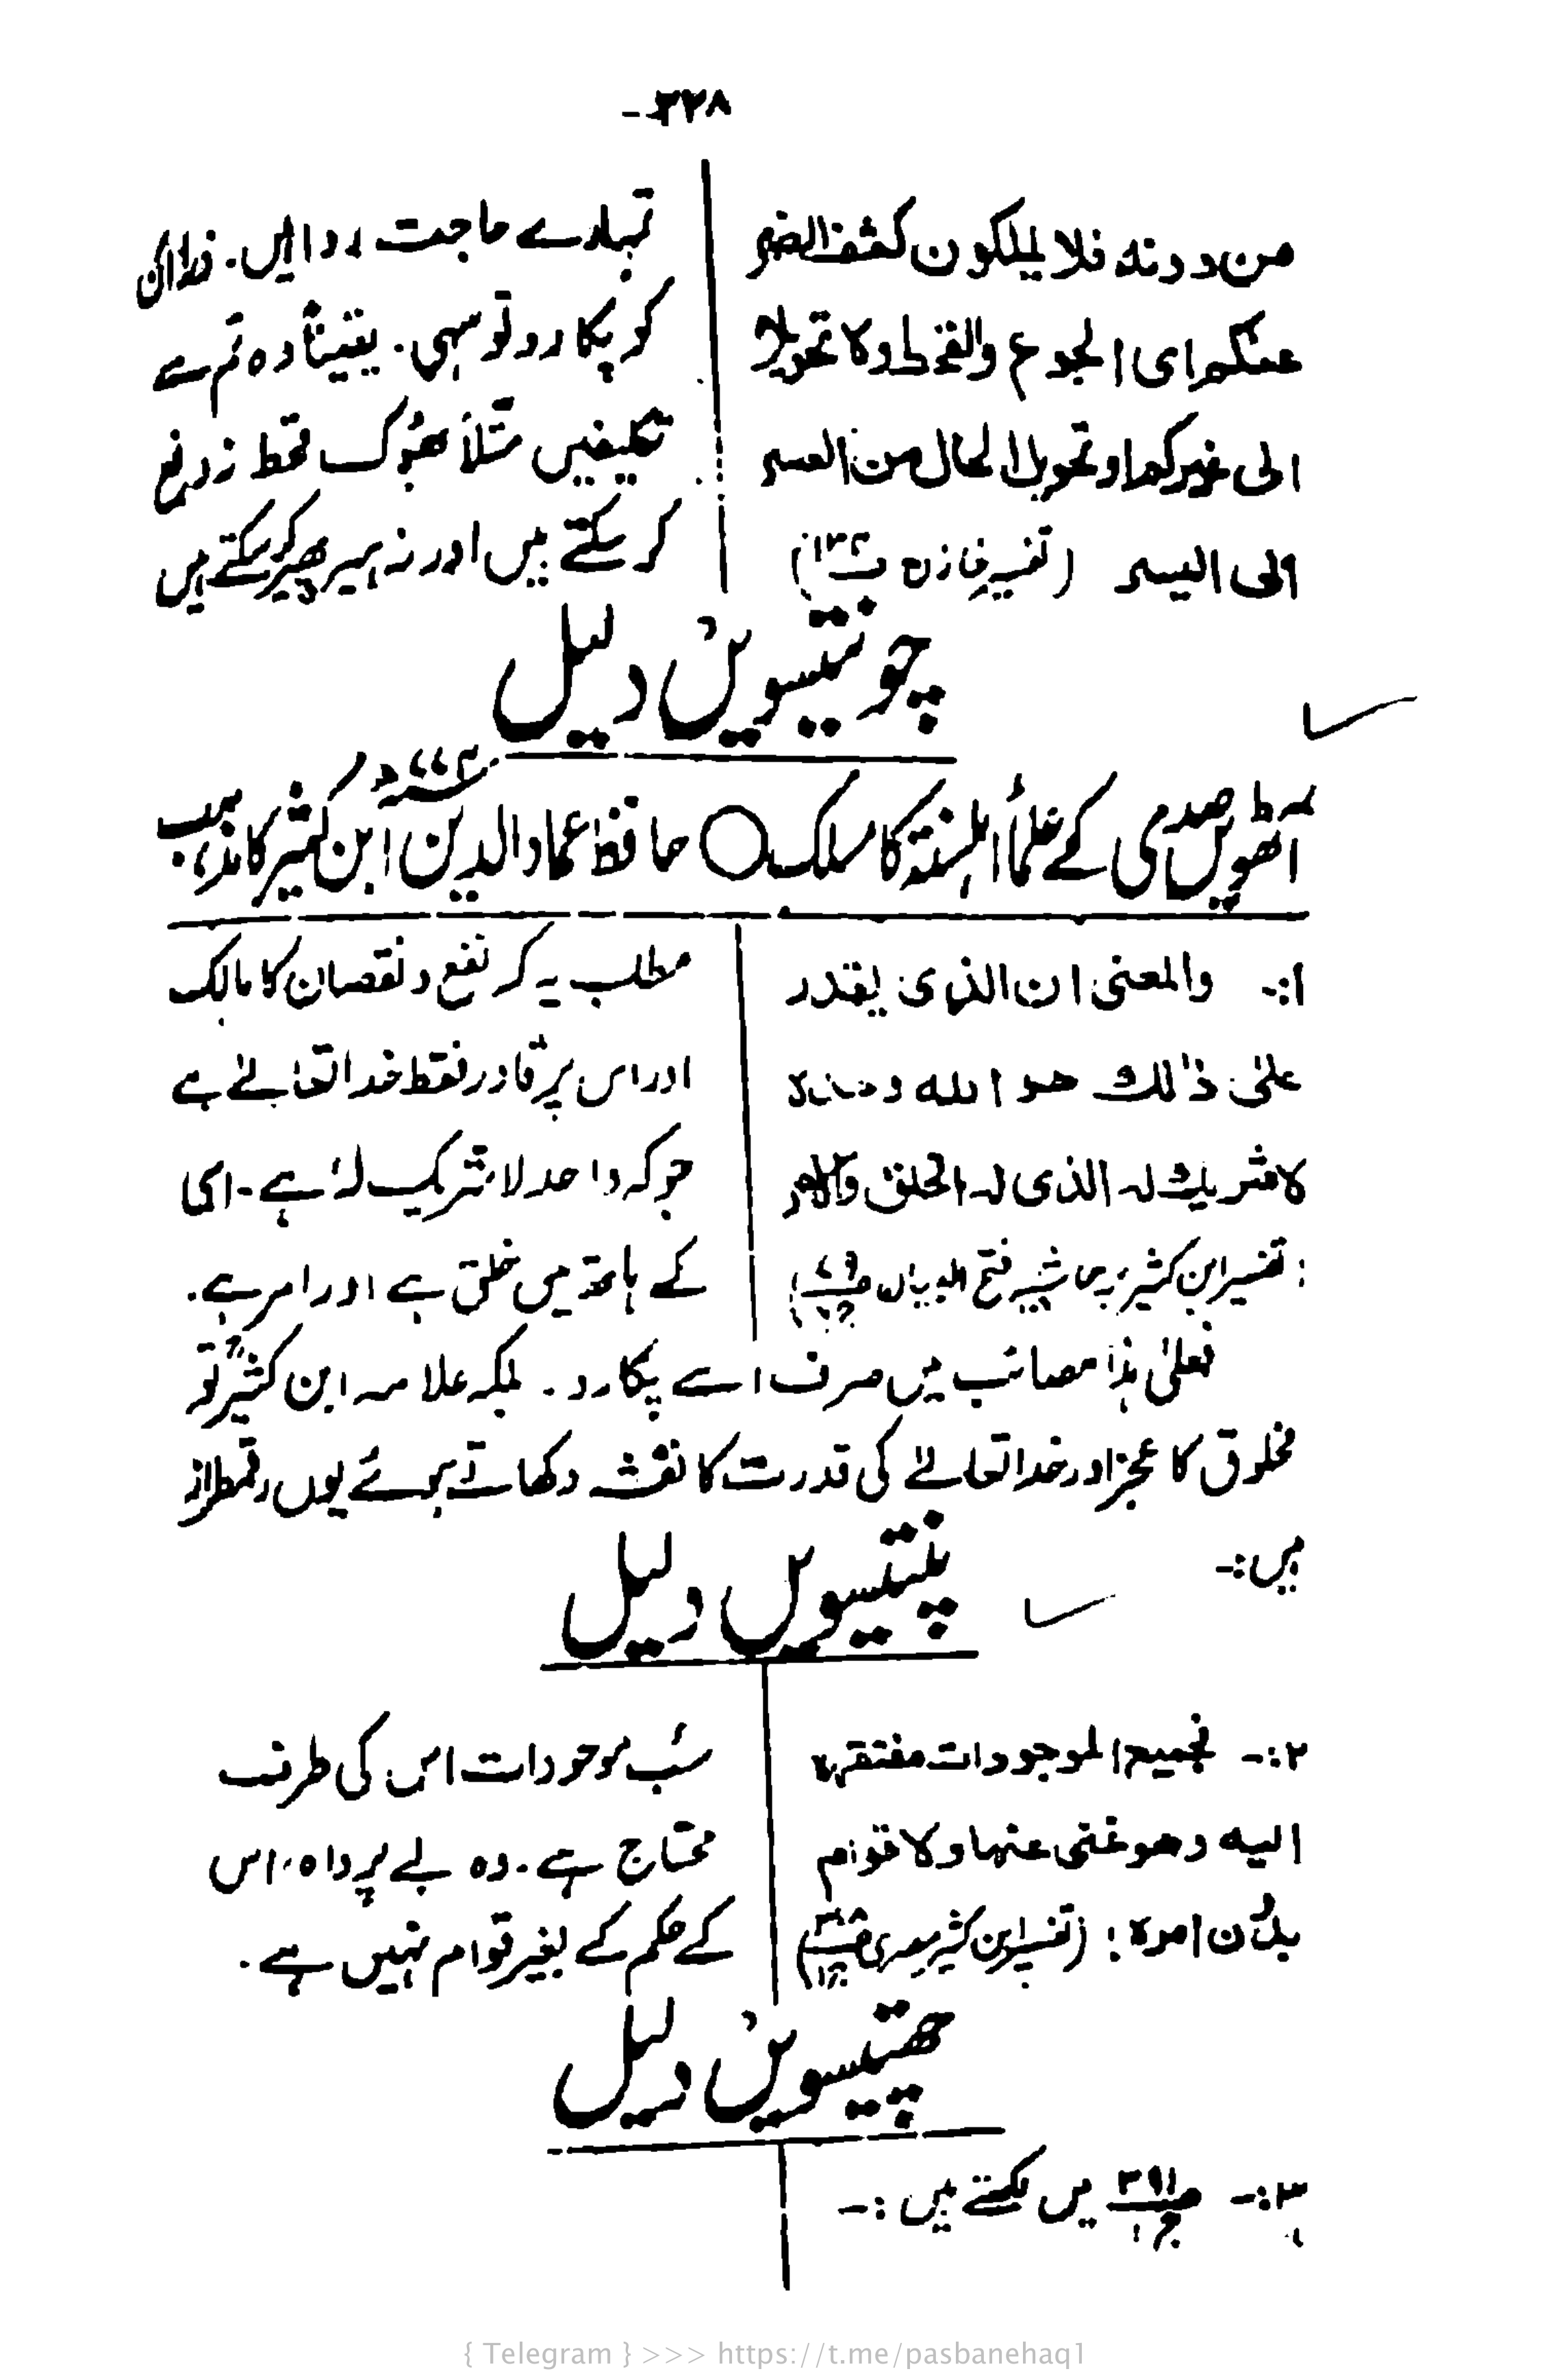 ۳۲۸-
من دونه فلا يملكون كشف الضر
عنكم اى الجوع والقحط ولا تحويلا
الى غيركم او تحويل الحال من العسر
الى اليسر (تفسیر خازن
تمہارے حاجت روا ہیں. ذرا ان
کو پکارو تو سہی. یقیناً وہ تم سے
تکلیفیں مثلاً بھوک قحط نہ دفع
کر سکتے ہیں اور نہ ہیر پھیر کر سکتے ہیں
چونتیسویں دلیل
آٹھویں صدی کے علماُ اہلسنۃ کا مسلک ○ حافظ عماد الدین ابن کثیر کا مذہب
۱:- والمعنى ان الذى يقدر
على ذلك هو الله وحده
لا شريك له الذى له الخلق والامر
(تفسیر ابن کثیر بر حاشیہ فتح البیان
مطلب یہ کہ نفع و نقصان کا مالک
اور اس پر قادر فقط خدا تعالےٰ ہے
جو کہ واحد لا شریک لہٗ ہے-اسی
کے ہاتھ میں خلق ہے اور امر ہے.
فعلیٰ ہذا مصائب میں صرف اسے پکارو. بلکہ علامہ ابن کثیرؒ تو
مخلوق کا عجز اور خدا تعالےٰ کی قدرت کا نقشہ دکھاتے ہوئے یوں رقمطراز
ہیں:-
پنتیسویں دلیل
۲:- فجميع الموجودات مفتقرة
اليه وهو غنى عنها ولا قوام
بدون امره! (تفسیر ابن کثیر مصری
سب موجودات اس کی طرف
محتاج ہے. وہ بے پرواہ، اس
کے حکم کے بغیر قوام نہیں ہے.
چھتیسویں دلیل
۳:- ص۳۹۱ ج۱ میں لکھتے ہیں:-
{ Telegram } >>> https://t.me/pasbanehaq1